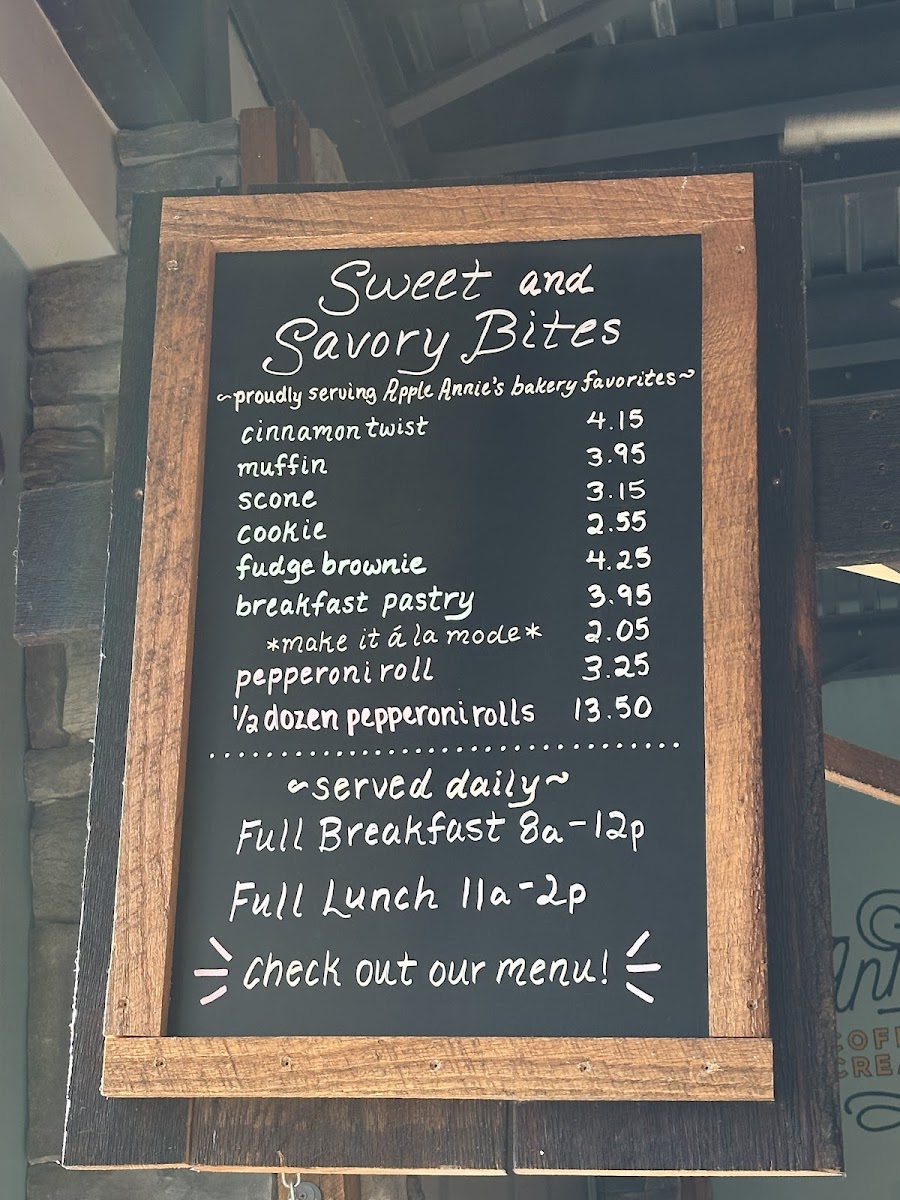 Sweet and
Savory Bites
~proudly serving Apple Annie's bakery favorites~
cinnamon twist 4.15
muffin 3.95
scone 3.15
cookie 2.55
fudge brownie 4.25
breakfast pastry 3.95
*make it á la mode* 2.05
pepperoni roll 3.25
1/2 dozen pepperoni rolls 13.50
~served daily~
Full Breakfast 8a-12p
Full Lunch 11a-2p
Check out our menu!